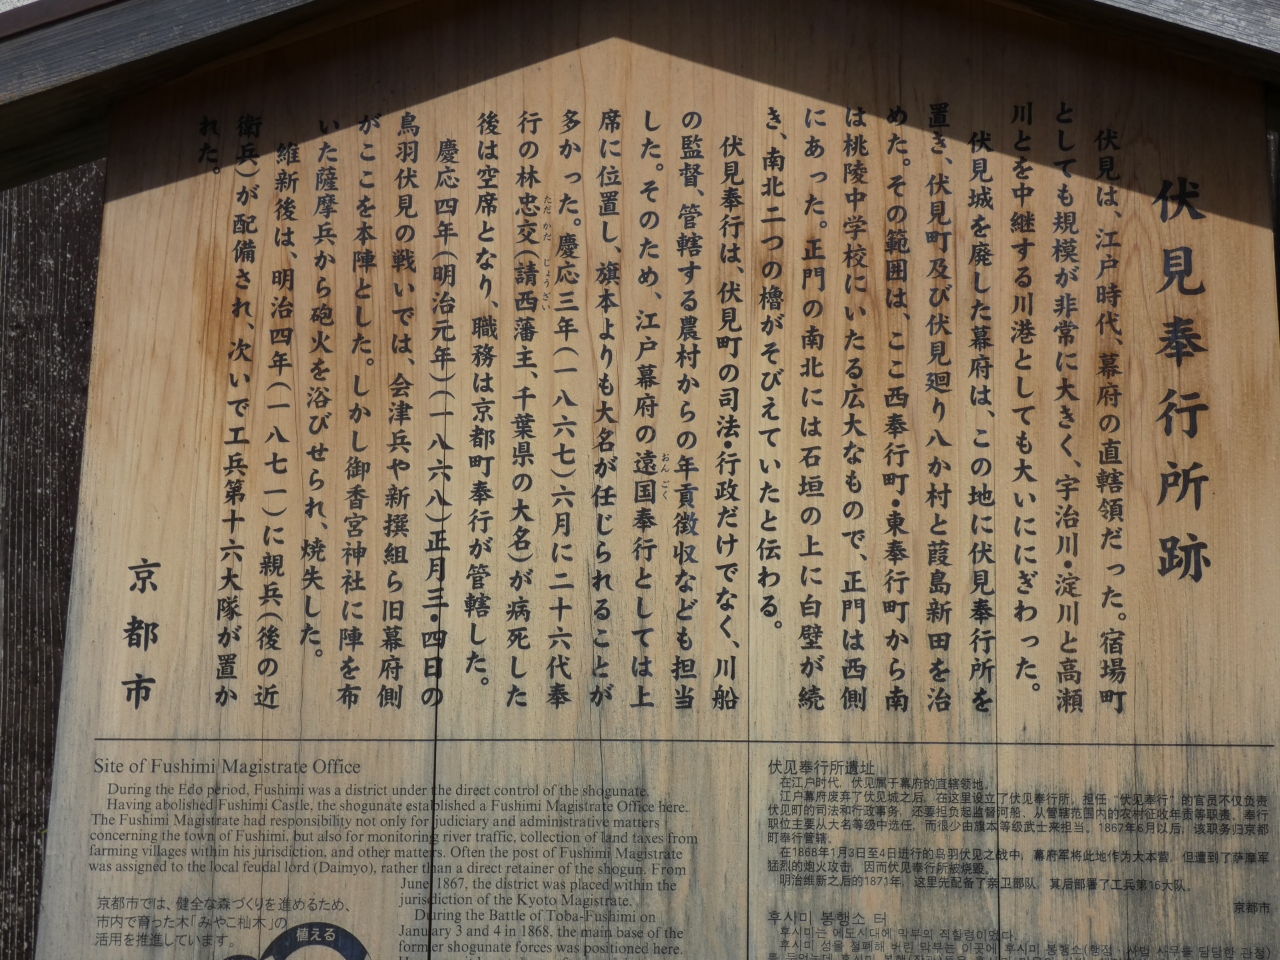 伏見奉行所跡
伏見は、江戸時代、幕府の直轄領だった。宿場町
としても規模が非常に大きく、宇治川・淀川と高瀬
川とを中継する川港としても大いににぎわった。
伏見城を廃した幕府は、この地に伏見奉行所を
置き、伏見町及び伏見廻り八か村と葭島新田を治
めた。その範囲は、ここ西奉行町・東奉行町から南
は桃陵中学校にいたる広大なもので、正門は西側
にあった。正門の南北には石垣の上に白壁が続
き、南北二つの櫓がそびえていたと伝わる。
伏見奉行は、伏見町の司法・行政だけでなく、川船
の監督、管轄する農村からの年貢徴収なども担当
した。そのため、江戸幕府の遠国奉行としては上
席に位置し、旗本よりも大名が任じられることが
多かった。慶応三年(一八六七)六月に二十六代奉
行の林忠交(請西藩主、千葉県の大名)が病死した
後は空席となり、職務は京都町奉行が管轄した。
慶応四年(明治元年)(一八六八)正月三・四日の
鳥羽伏見の戦いでは、会津兵や新撰組ら旧幕府側
がここを本陣とした。しかし御香宮神社に陣を布
いた薩摩兵から砲火を浴びせられ、焼失した。
維新後は、明治四年(一八七一)に親兵(後の近
衛兵)が配備され、次いで工兵第十六大隊が置か
れた。
京都市
Site of Fushimi Magistrate Office
During the Edo period, Fushimi was a district under the direct control of the shogunate.
Having abolished Fushimi Castle, the shogunate established a Fushimi Magistrate Office here.
The Fushimi Magistrate had responsibility not only for judiciary and administrative matters
concerning the town of Fushimi, but also for monitoring river traffic, collection of land taxes from
farming villages within his jurisdiction, and other matters. Often the post of Fushimi Magistrate
was assigned to the local feudal lord (Daimyo), rather than a direct retainer of the shogun. From
June 1867, the district was placed within the
jurisdiction of the Kyoto Magistrate.
During the Battle of Toba-Fushimi on
January 3 and 4 in 1868, the main base of the
former shogunate forces was positioned here.
京都市では、健全な森づくりを進めるため、
市内で育った木「みやこ杣木」の
活用を推進しています。
植える
伏见奉行所遗址
在江户时代，伏见属于幕府的直辖领地。
江户幕府废弃了伏见城之后，在这里设立了伏见奉行所，担任“伏见奉行”的官员不仅负责
伏见町的司法和行政事务，还要担负起监督河船、从管辖范围内的农村征收年贡等职责，奉行
职位主要从大名等级中选任，而很少由旗本等级武士来担当。1867年6月以后，该职务归京都
町奉行管辖。
在1868年1月3日至4日进行的鸟羽伏见之战中，幕府军将此地作为大本营，但遭到了萨摩军
猛烈的炮火攻击，因而伏见奉行所被烧毁。
明治维新之后的1871年，这里先配备了亲卫部队，其后部署了工兵第16大队。
京都市
후시미 봉행소 터
후시미는 에도시대에 막부의 직할령이었다.
후시미 성을 철폐해 버린 막부는 이곳에 후시미 봉행소(행정·사법 사무를 담당한 관청)